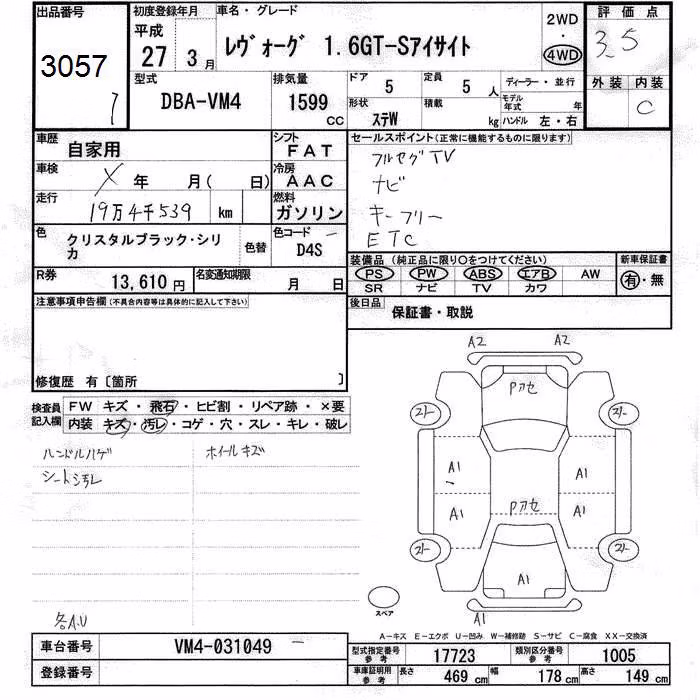 出品番号 初度登録年月 車名・グレード 評価点
3057
平成 27 3月
レヴォーグ 1.6GT-Sアイサイト
2WD
・
4WD
3.5
外装 内装
C
型式 排気量 ドア 定員 ディーラー・並行
DBA-VM4 1599 CC 5 5人
形状 積載 モデル年式 年
ステW kg ハンドル 左・右
車歴 シフト セールスポイント(正常に機能するものに限ります)
自家用 FAT
フルセグTV
車検 冷房
X 年 月( 日) AAC
ナビ
走行 燃料
19万4千539 km ガソリン
キーフリー
色 色替 色コード
クリスタルブラック・シリカ D4S
ETC
装備品 (純正品に限り○をつけてください) 新車保証書
PS PW ABS エアB AW 有・無
SR ナビ TV カワ
R券 13,610円 名変通知期限 月 日
後日品 保証書・取説
注意事項申告欄(不具合内容等は具体的に記入して下さい)
修復歴 有〔箇所 〕
検査員記入欄 FW キズ・飛石・ヒビ割・リペア跡・×要
内装 キズ・汚レ・コゲ・穴・スレ・キレ・破レ
ハンドルハゲ ホイールキズ
シート汚レ
各A.U
A2 A2
Pアセ
A1 A1
Pアセ
A1 A1
A1
A1
スペア
A-キズ E-エクボ U-凹み W-補修跡 S-サビ C-腐食 XX-交換済
車台番号 VM4-031049
登録番号
型式指定番号 参考 17723 類別区分番号 参考 1005
自動車証明用 参考 長さ 469 cm 幅 178 cm 高さ 149 cm